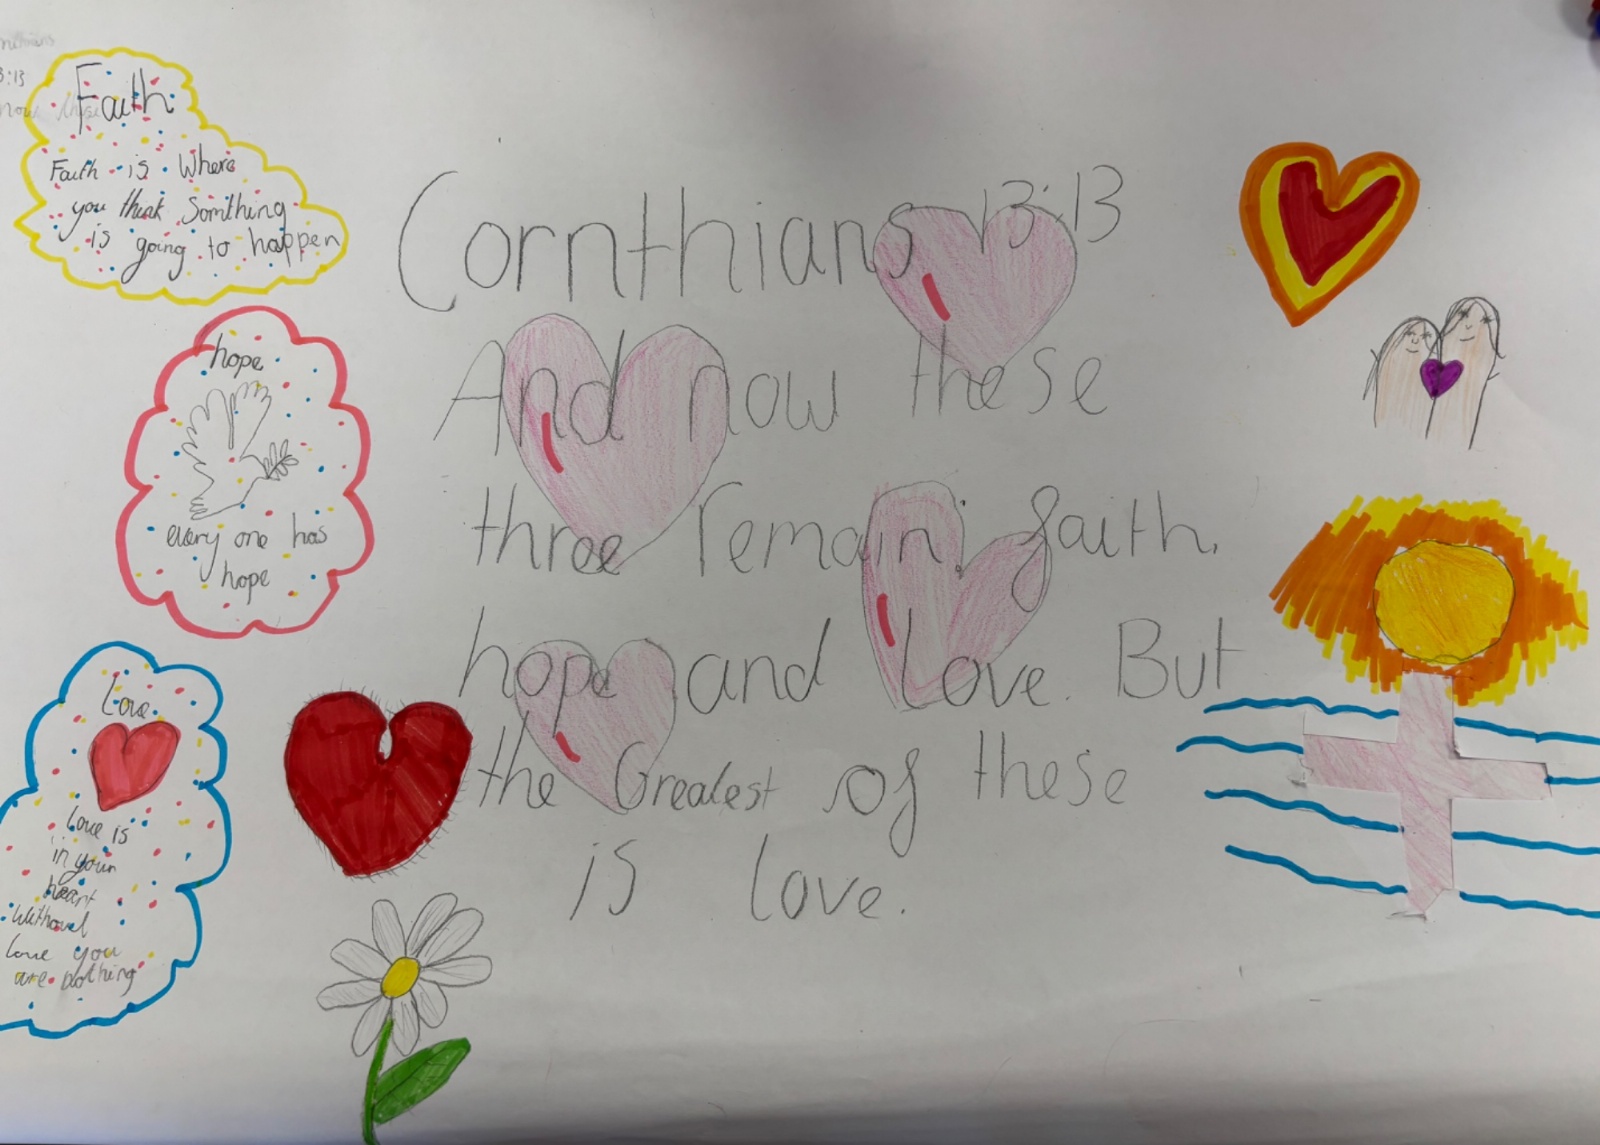 13:13
now these
Faith
Faith is Where
you think Somthing
is going to happen
hope
every one has
hope
Love
Love is
in your
heart
Without
love you
are nothing
Cornthians 13:13
And now these
three remain faith,
hope and Love. But
the Greatest of these
is love.